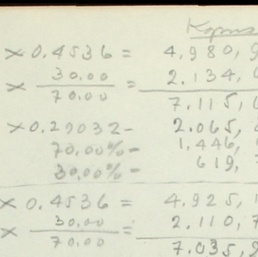 Kgms
× 0.4536 = 4.980,9
× 30.00 / 70.00 = 2.134,6
7.115,6
× 0.29032 - 2.065,
70.00% - 1.446,
30.00% - 619,7
× 0.4536 = 4.925,1
× 30.00 / 70.00 = 2.110,7
7.035,8